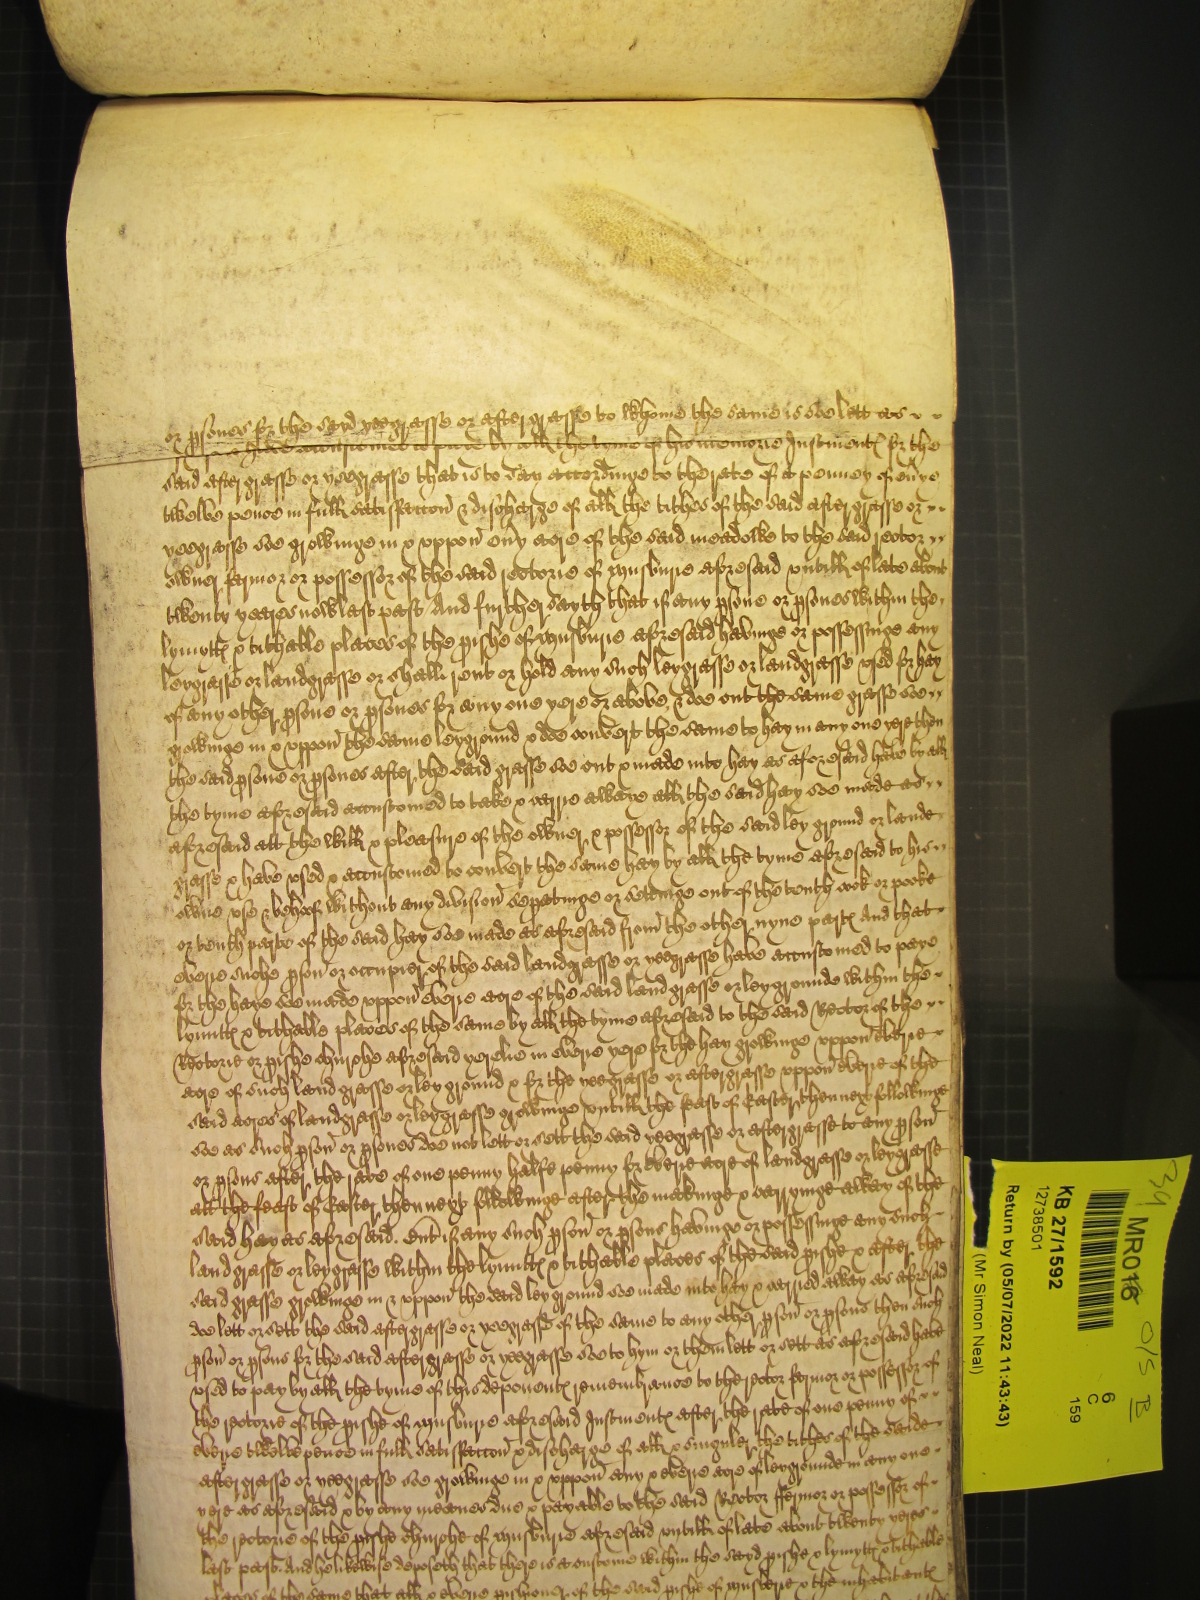 or psones for the sayd yeegrasse or aftergrasse to whome the same is soe lett as
accustomed to paie by all the tyme of his memorie Instment for the
said aftergrasse or yeegrasse that is to say accordinge to the rate of a penney of euye
twelve pence in full satisfaccon & discharge of all the tithes of the said aftergrasse or
yeegrasse soe growinge in & vppon euy acre of the said meadowe to the said rector
owner farmor or possessor of the said rectorie of aforesaid vntill of late about
twenty yeares now last past And further sayth that if any psone or psones within the
lymytt & tithable places of the pishe of aforesaid havinge or possessinge any
leygrasse or landgrasse or shall rent or hold any such leygrasse or landgrasse vsed for hay
of any other psone or psones for any one yere or above, & doe cut the same grasse soe
growinge in & vppon the same leyground & doe convert the same to hay in any one yere then
the said psone or psones after the said grasse soe cut & made into hay as aforesaid have by all
the tyme aforesaid accustomed to take & carrie awaye all the said hay soe made as
aforesaid att the will & pleasure of the owner & possessor of the said ley ground or lande
grasse & have vsed & accustomed to convert the same hay by all the tyme aforesaid to his
owne vse & behoof without any division sepatinge or settinge out of the tenth cock or pooke
or tenth parte of the said hay soe made as aforesaid from the other nyne part And that
everie suche pson or occupier of the said landgrasse or yeegrasse have accustomed to paye
for the haye soe made vppon everie acre of the said landgrasse or leygrounde within the
lymitt & tithable places of the same by all the tyme aforesaid to the said Rector of the
Rectorie or pishe churche aforesaid yerelie in everie yere for the hay growinge vppon everie
acre of such landgrasse or leyground & for the yeegrasse or aftergrasse vppon everie of the
said acres of landgrasse or leygrasse growinge vntill the feast of Easter then next followinge
soe as such pson or psones doe not lett or sett the said yeegrasse or aftergrasse to any pson
or psons after the rate of one penny halfe penny for everie acre of landgrasse or leygrasse
att the feast of Easter then next followinge after the makinge & carryinge away of the
said hay as aforesaid. But if any such pson or psons havinge or possessinge any such
landgrasse or leygrasse within the lymitt & tithable places of the said pishe & after the
said grasse growinge in & vppon the said leyground soe made into hay & carried away as aforesaid
doe lett or sett the said aftergrasse or yeegrasse of the same to any other pson or psons then such
pson or psons for the said aftergrasse or yeegrasse soe to hym or them lett or sett as aforesaid have
vsed to pay by all the tyme of this deponent remembrance to the rector farmor or possessor of
the rectorie of the pishe of aforesaid Instment after the rate of one penny of
everie twelve pence in full satisfaccon & discharge of all & singuler the tithes of the saide
aftergrasse or yeegrasse soe growinge in & vppon any & everie acre of leygrounde in any one
yere as aforesaid & by any meanes due & payable to the said Rector ffermor or possessor of
the rectorie of the pishe churche of aforesaid vntill of late about twenty yeres
last past. And he likewise deposeth that there is a custome within the sayd pishe & lymytt & tithable
places of the same that all & everie pishioner of the said pishe of & the inhabitant
39 MR016 O/S B
KB 27/1592
12738501
Return by (05/07/2022 11:43:43)
(Mr Simon Neal)
6
C
159